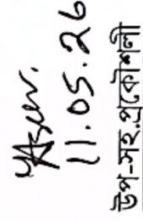 11.05.26
উপ-সহ.প্রকৌশলী